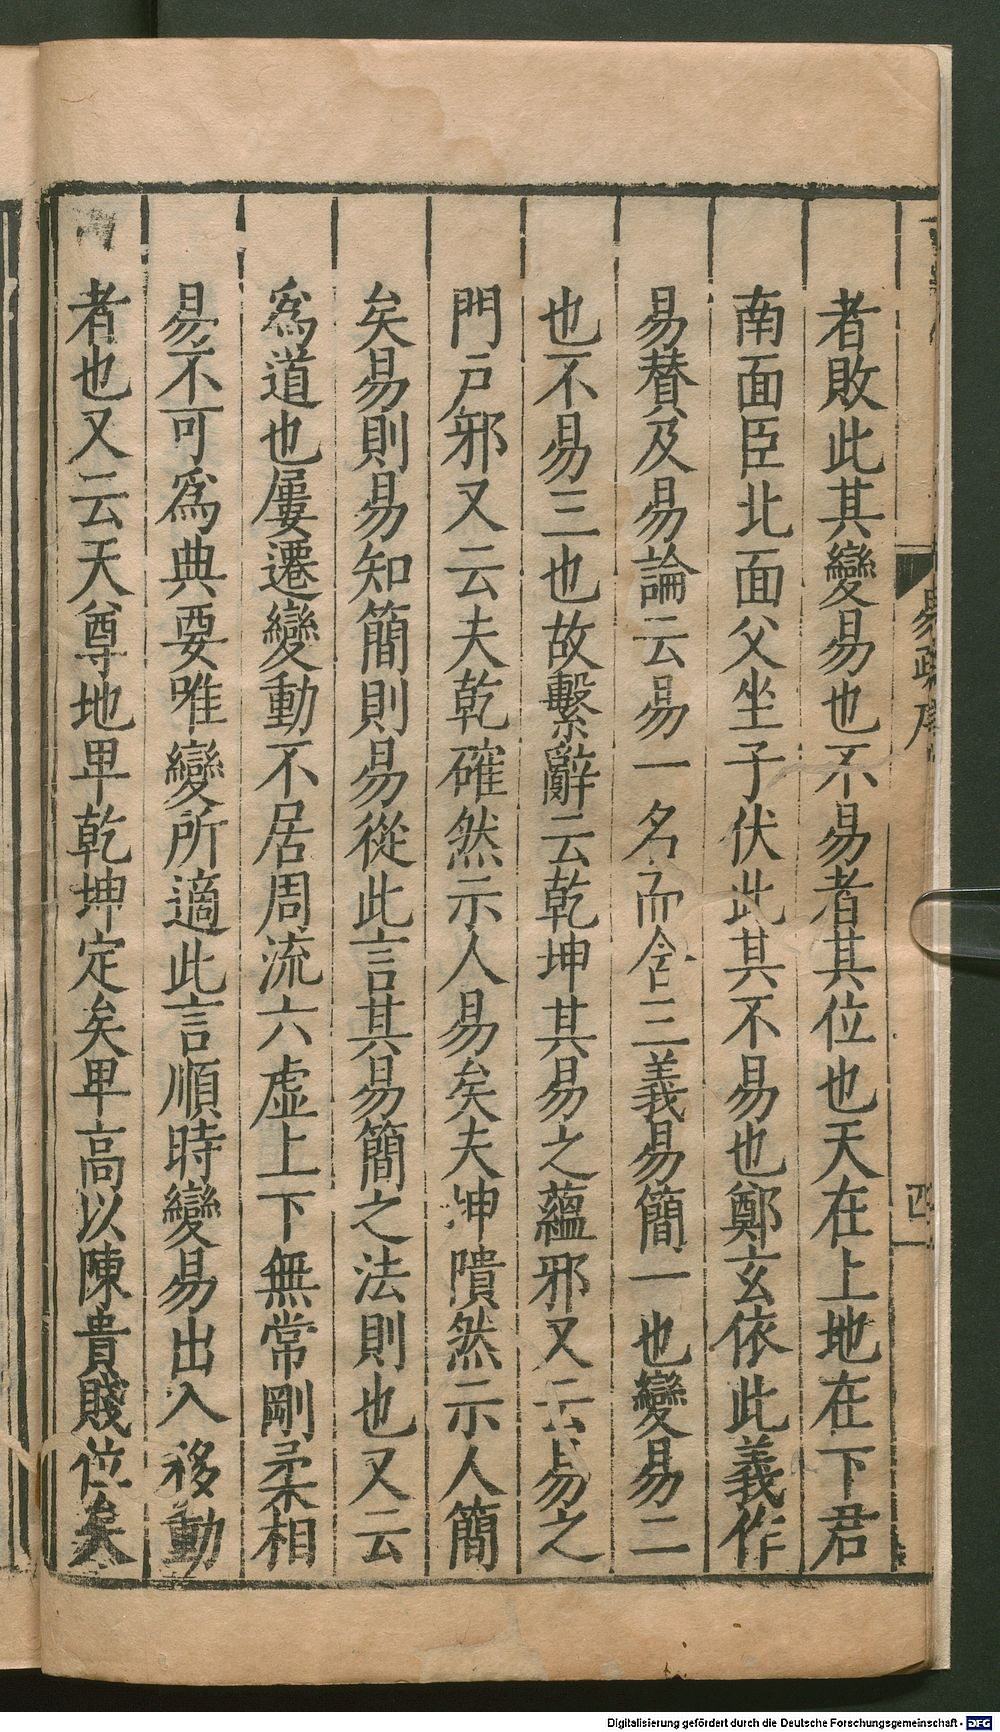 者敗此其變易也不易者其位也天在上地在下君
南面臣北面父坐子伏此其不易也鄭玄依此義作
易替及易論云易一名而含三義易簡一也變易二
也不易三也故繫辭云乾坤其易之蘊邪又云易之
門戶邪又云夫乾確然示人易矣夫坤隤然示人簡
矣易則易知簡則易從此言其易簡之法則也又云
爲道也屢遷變動不居周流六虛上下無常剛柔相
易不可爲典要唯變所適此言順時變易出入移動
者也又云天尊地卑乾坤定矣卑高以陳貴賤位矣
易疏序
四
Digitalisierung gefördert durch die Deutsche Forschungsgemeinschaft - DFG